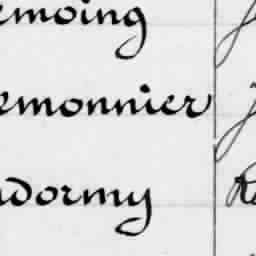 emoing
emonnier
ndormy